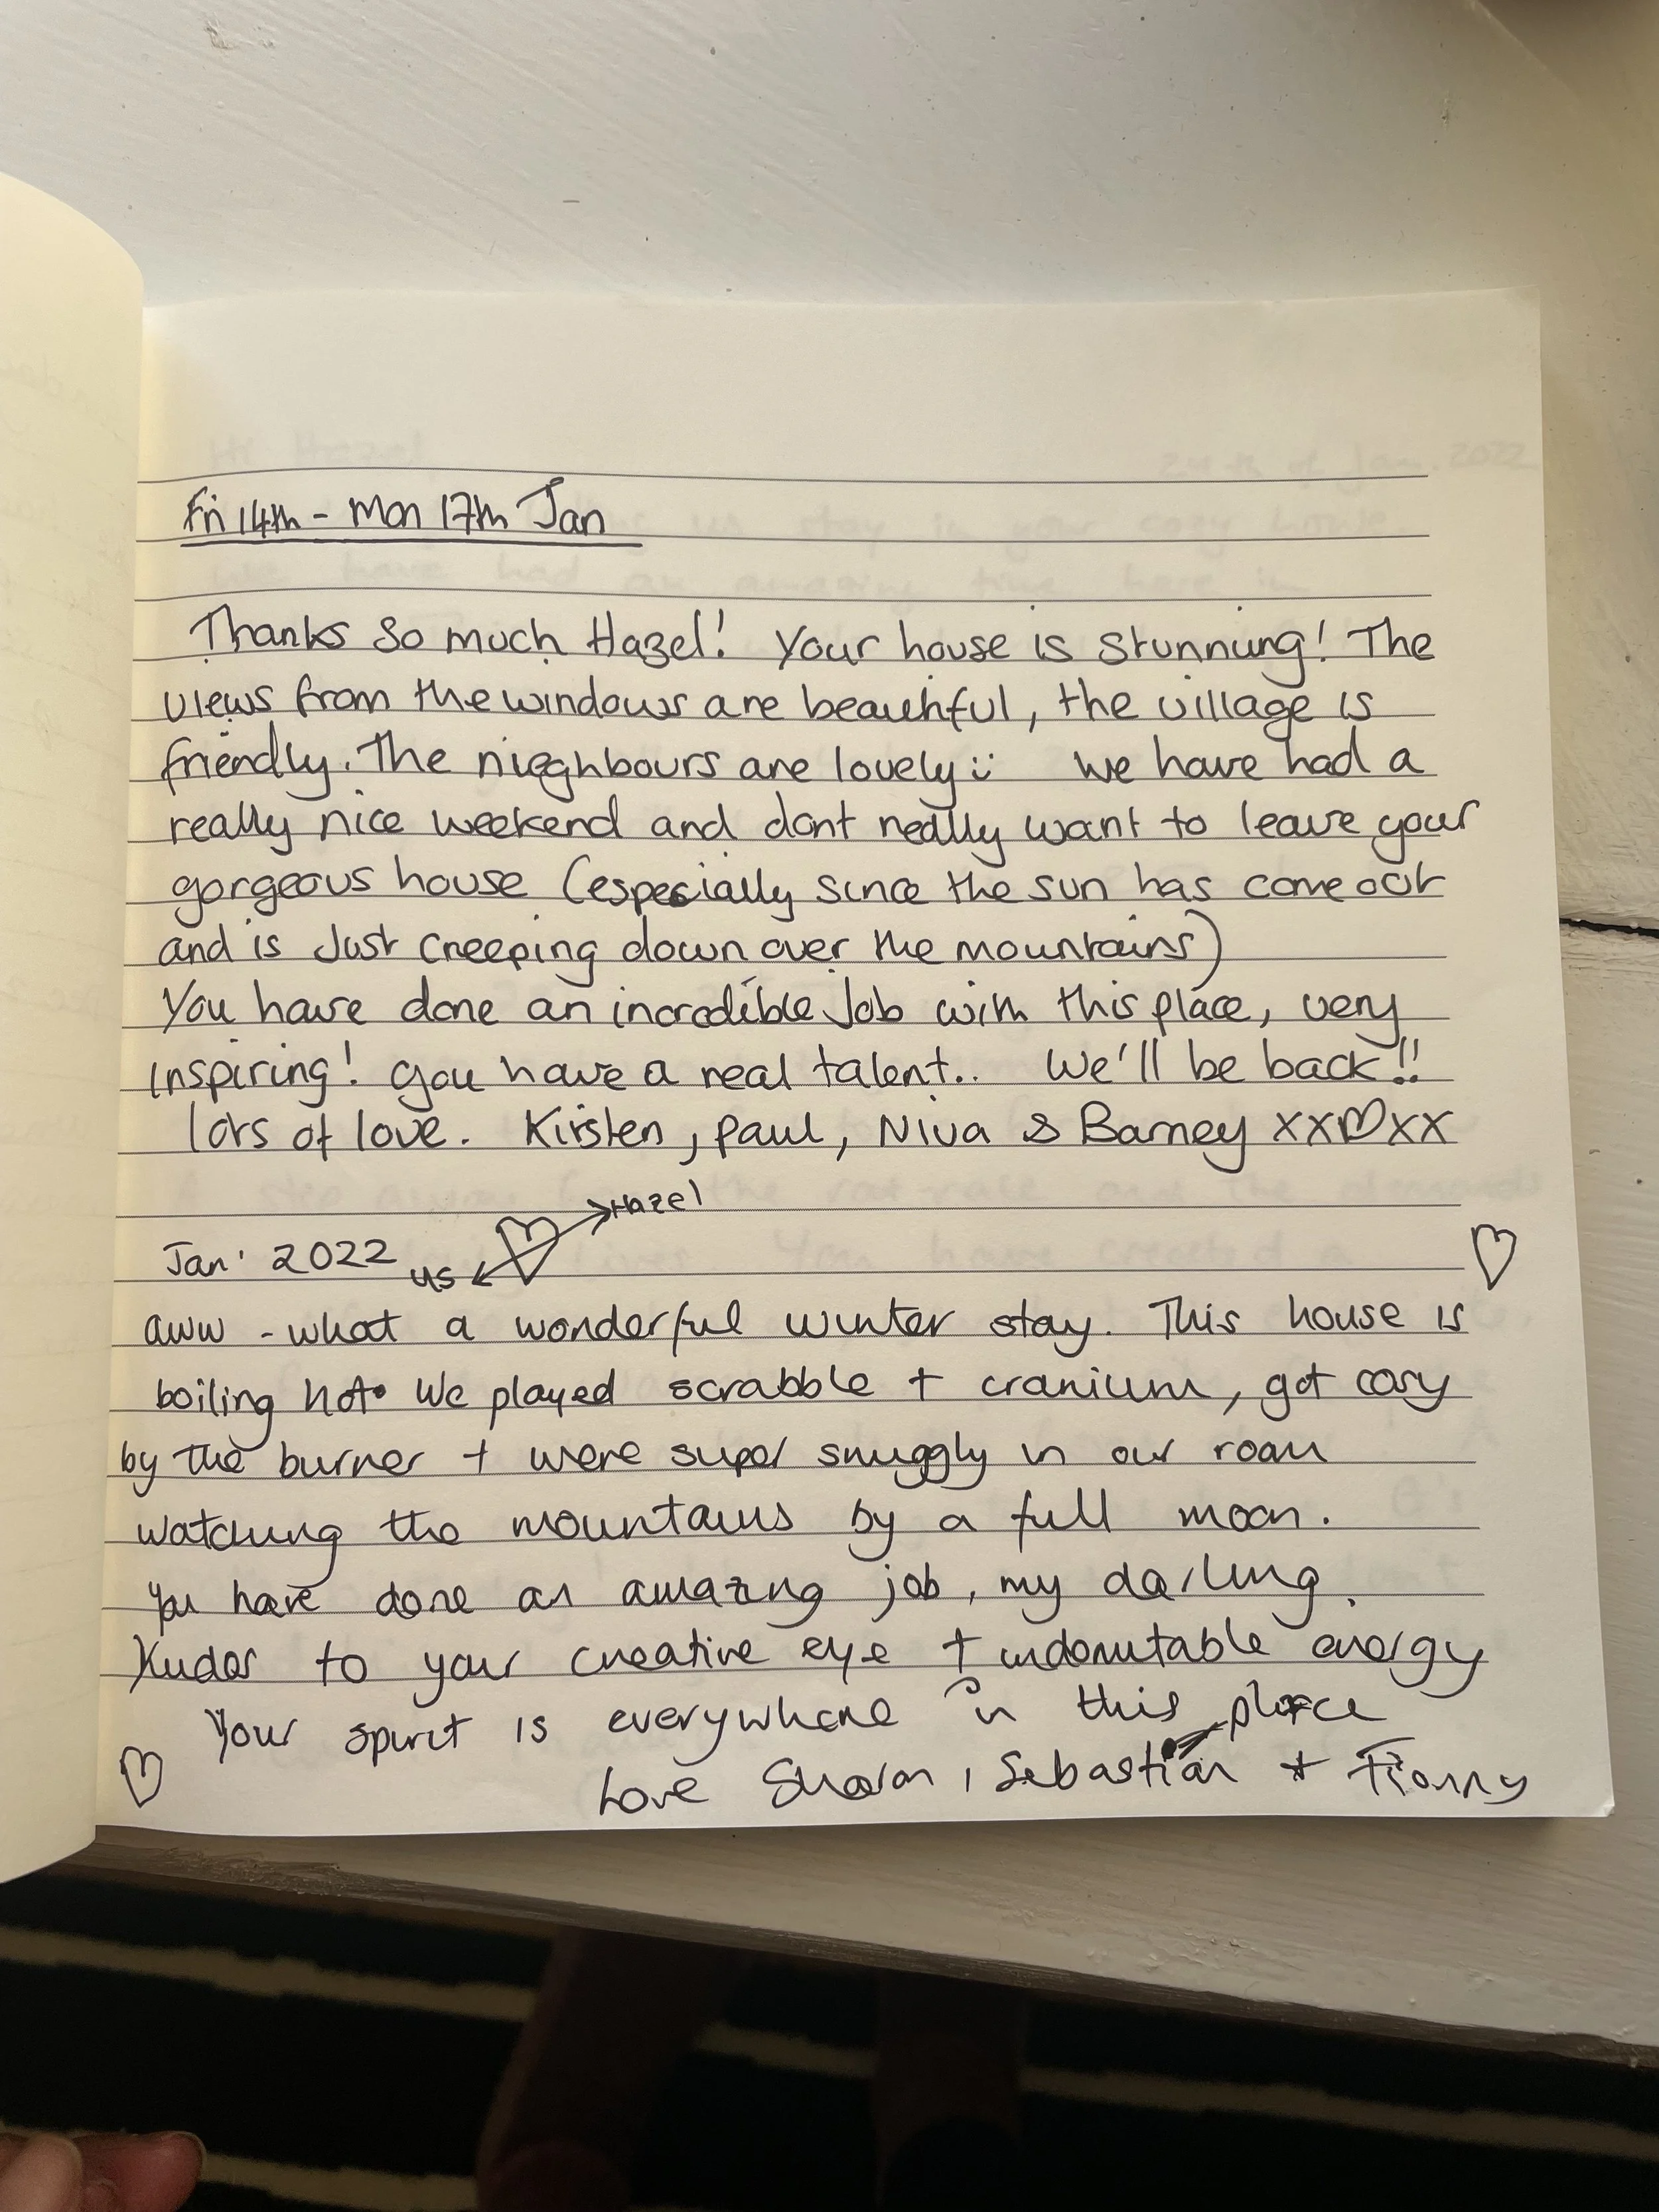 Fri 14th - Mon 17th Jan
Thanks so much Hazel! Your house is stunning! The
views from the windows are beautiful, the village is
friendly. The nieghbours are lovely :) We have had a
really nice weekend and dont really want to leave your
gorgeous house (especially since the sun has come out
and is Just creeping down over the mountains)
You have done an incredible Job with this place, very
inspiring! you have a real talent.. We'll be back!!
lots of love. Kirsten, paul, Niva & Barney xx♡xx
Hazel
Jan' 2022 us
aww - what a wonderful winter stay. This house is
boiling hot. We played scrabble + cranium, got cosy
by the burner + were super snuggly in our room
watching the mountains by a full moon.
You have done an amazing job, my darling.
Kudos to your creative eye + indomitable energy
Your spirit is everywhere in this place
Love Sharon, Sebastian +